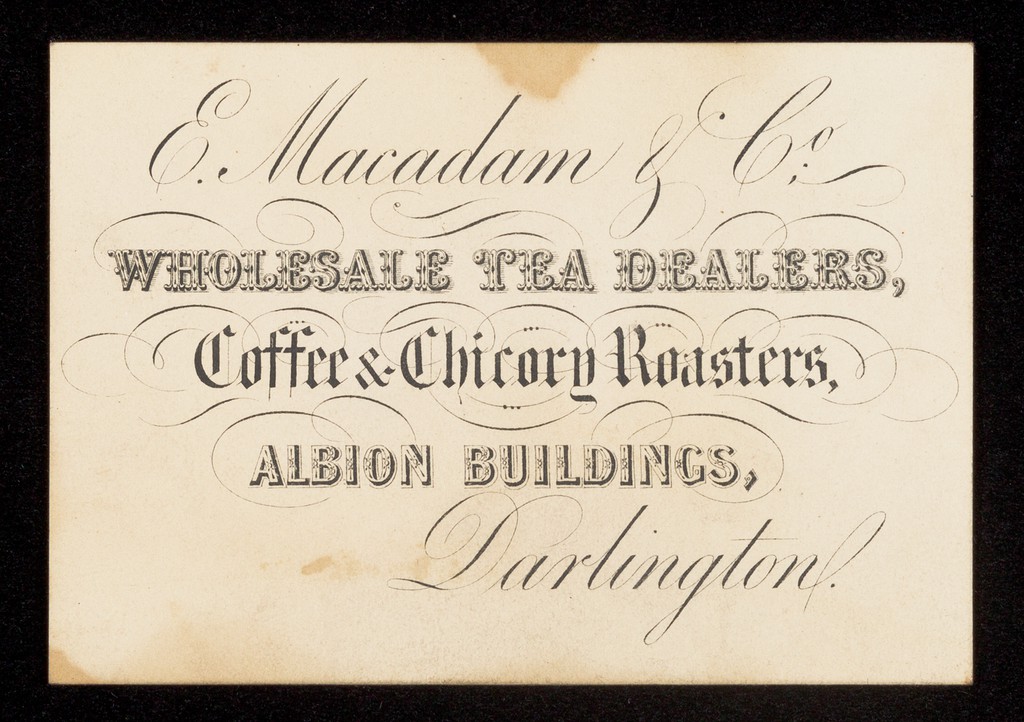 E. Macadam & Co.
WHOLESALE TEA DEALERS,
Coffee & Chicory Roasters,
ALBION BUILDINGS,
Darlington.